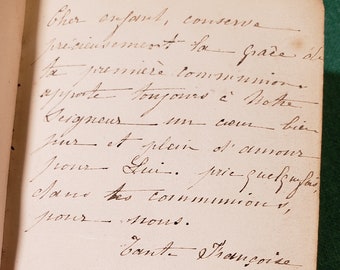 Cher enfant, conserve
précieusement la grâce de
ta première communion
apporte toujours à Notre
Seigneur un cœur bien
pur et plein d'amour
pour Lui. prie quelquefois,
dans tes communions,
pour nous.
Tante Françoise